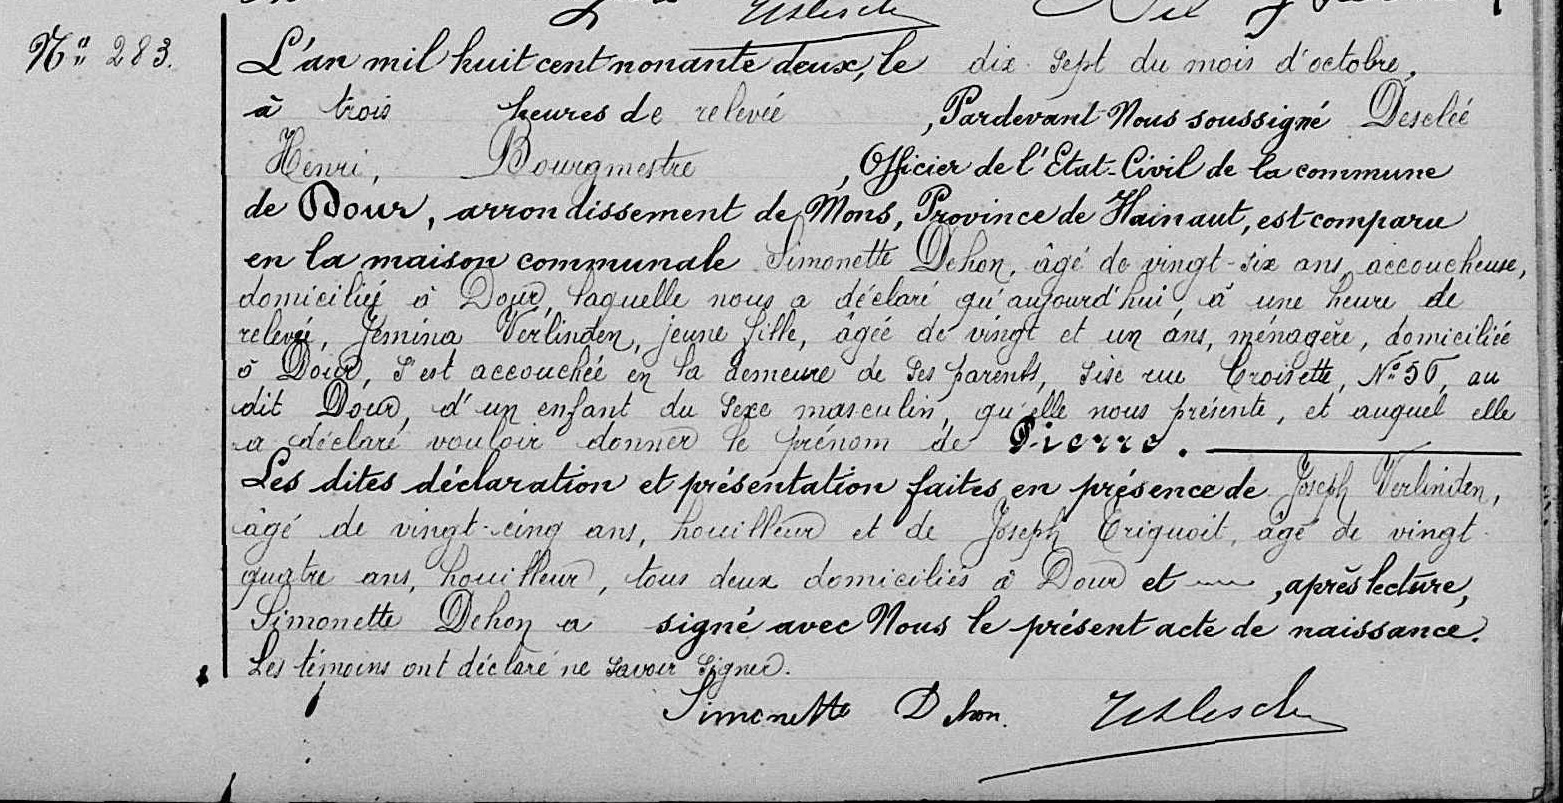 Nº 283.
L'an mil huit cent nonante deux, le dix sept du mois d'octobre,
à trois heures de relevée, Pardevant Nous soussigné Desclée
Henri, Bourgmestre, Officier de l'Etat-Civil de la commune
de Dour, arrondissement de Mons, Province de Hainaut, est comparu
en la maison communale Simonette Dehon, âgé de vingt-six ans, accoucheuse,
domiciliée à Dour, laquelle nous a déclaré qu'aujourd'hui, à une heure de
relevée, Jémina Verlinden, jeune fille, âgée de vingt et un ans, ménagère, domiciliée
à Dour, s'est accouchée en la demeure de ses parents, sise rue Croisette, Nº 56, au
dit Dour, d'un enfant du sexe masculin, qu'elle nous présente, et auquel elle
a déclaré vouloir donner le prénom de Pierre.
Les dites déclaration et présentation faites en présence de Joseph Verlinden,
âgé de vingt-cinq ans, houilleur et de Joseph Criquoit, âgé de vingt-
quatre ans, houilleur, tous deux domiciliés à Dour et, après lecture,
Simonette Dehon a signé avec Nous le présent acte de naissance.
Les témoins ont déclaré ne savoir signer.
Simonette Dehon.